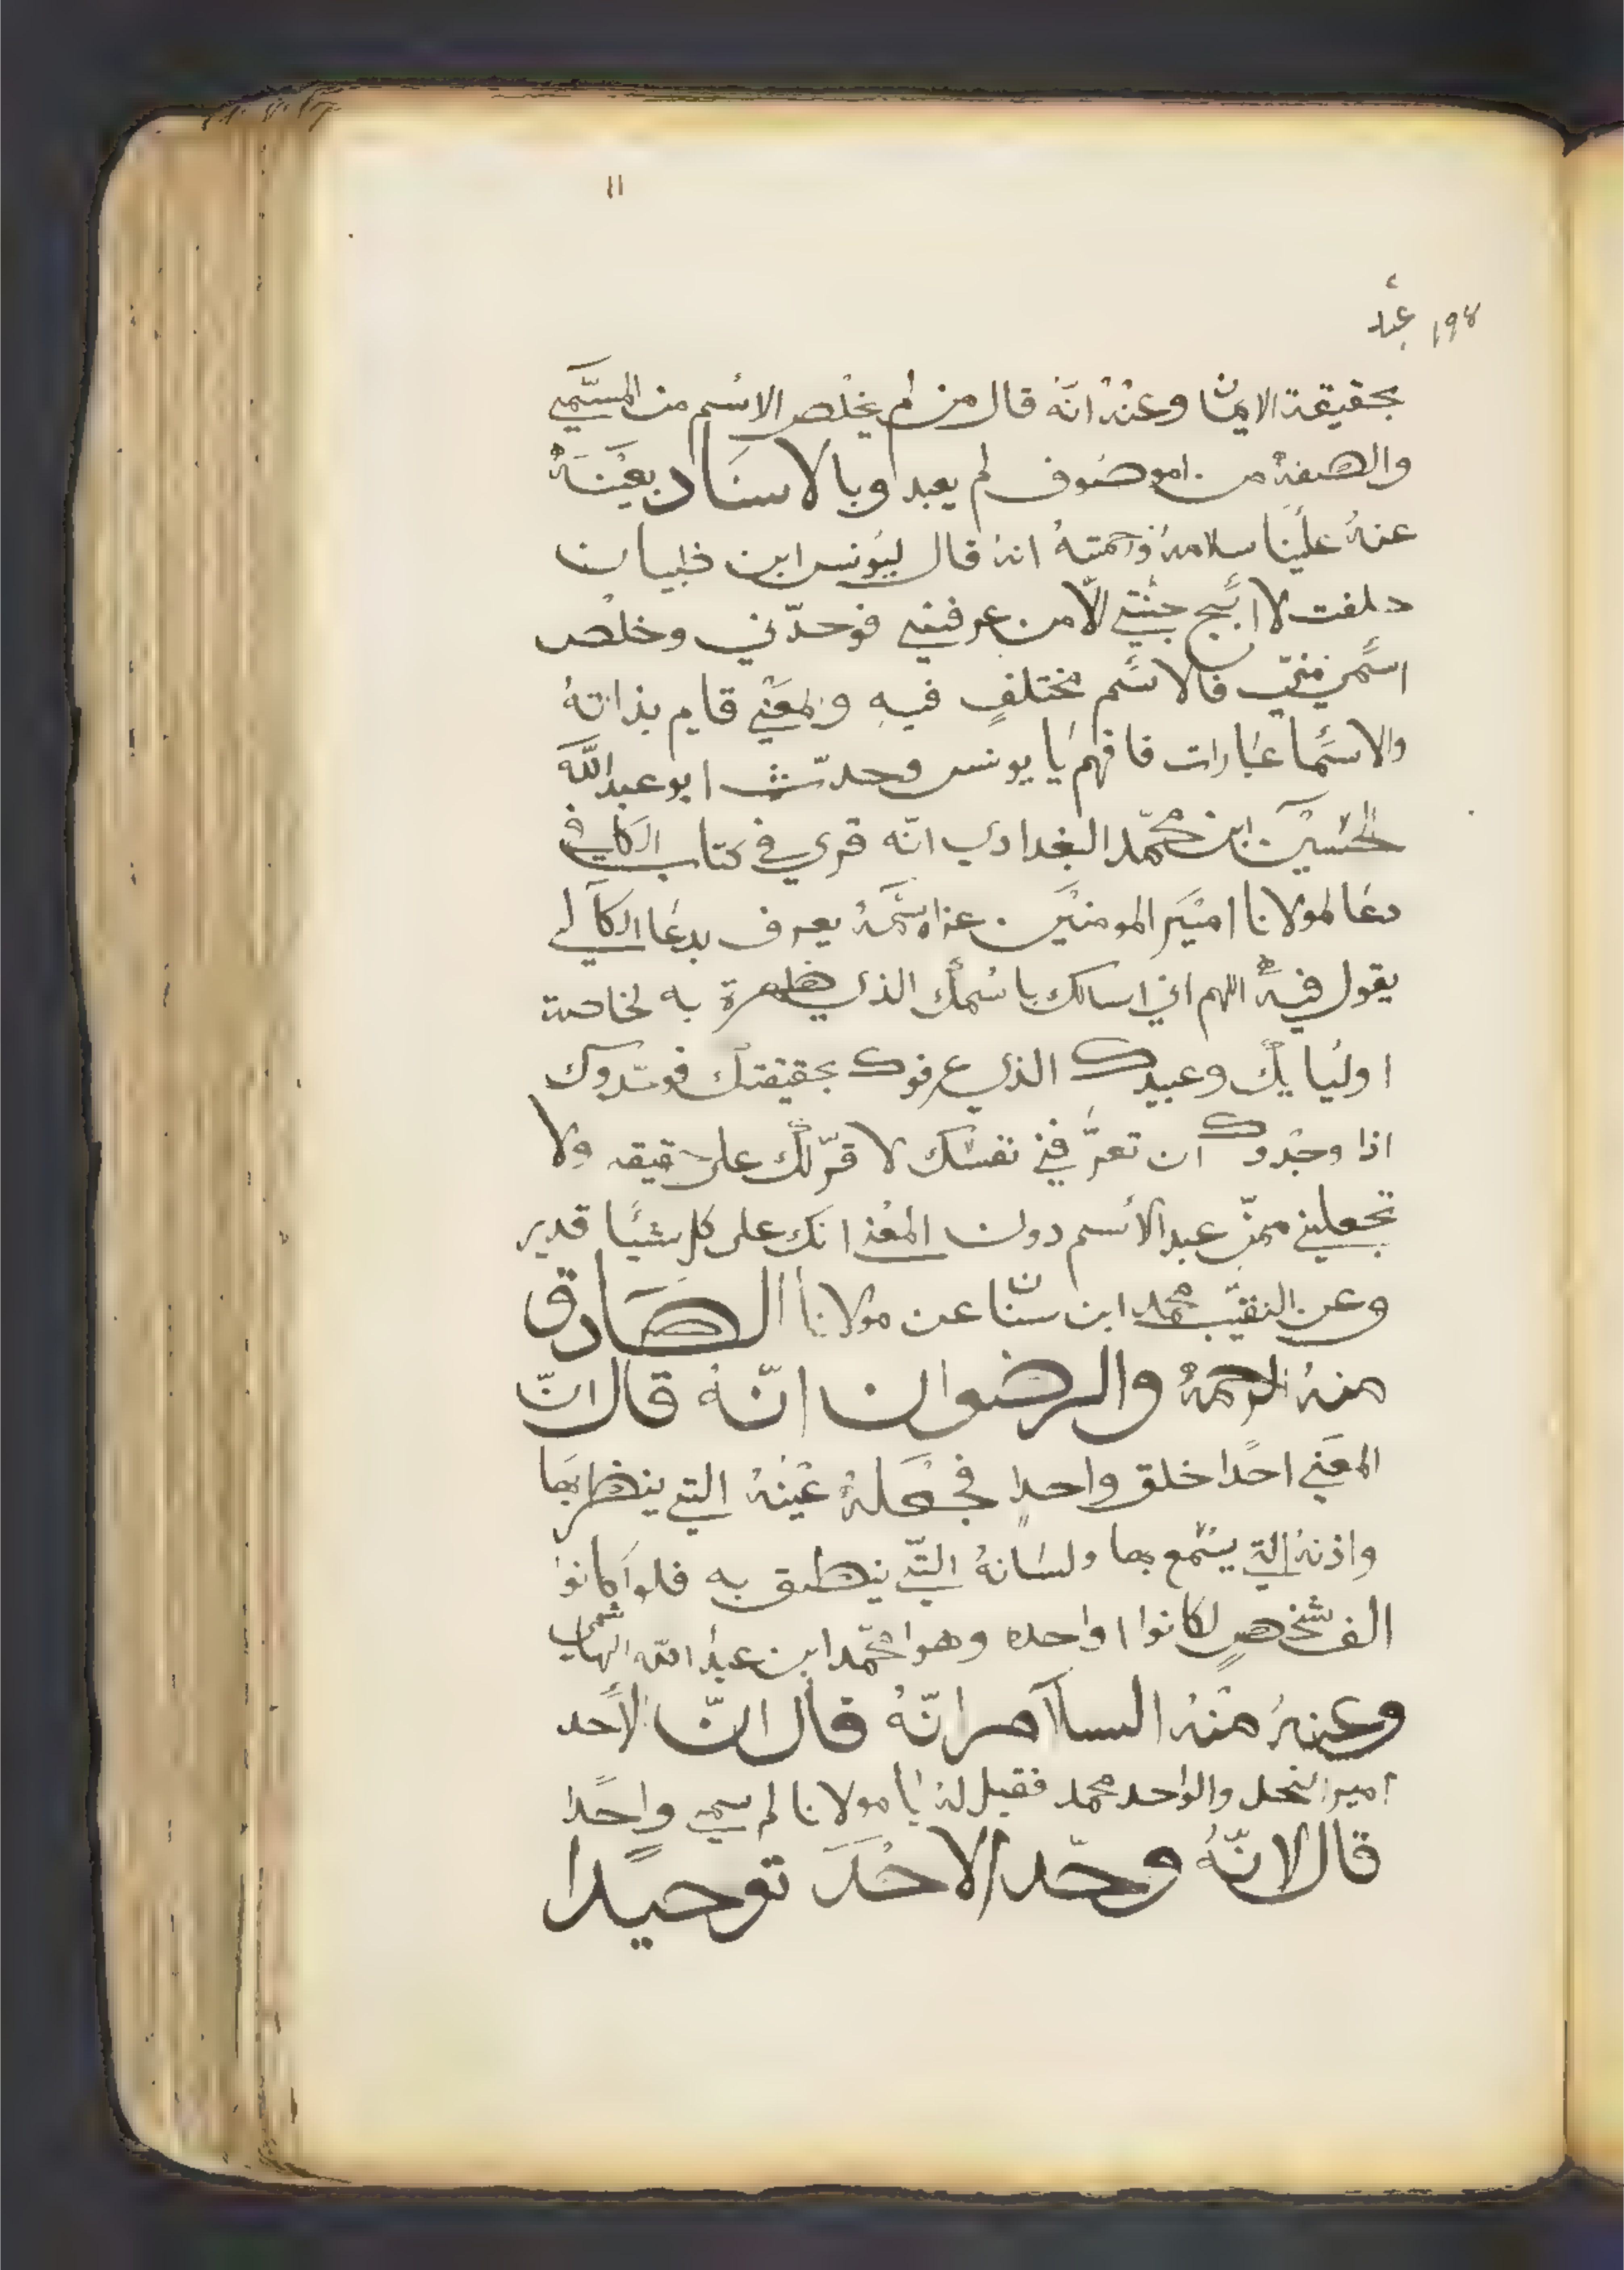 ١١
١٩٤ عبد
بحقيقة الايمان وعنه انه قال من لم يخلص الاسم من المسمي
والصفه من اموصوف لم يعبد اوبالاسناد بعينه
عنه علينا سلامه ورحمته انه قال ليونس ابن ظبيان
حلفت لا ابيح جنتي الا من عرفني فوحدني وخلص
اسمي مني فالاسم مختلف فيه والمعني قايم بذاته
والاسما عبارات فافهم يا يونس وحدث ابو عبد الله
الحسين ابن محمد البغدادي انه قري في كتاب الكافي
دعا لمولانا امير المومنين عز اسمه يعرف بدعا الكالي
يقول فيه اللهم اني اسالك باسمك الذي ظهرة به لخاصة
اوليايك وعبيدك الذي عرفوك بحقيقتك
اذا وجدوك ان تعرفني نفسك لا قر لك علي حقيقه ولا
تجعلني ممن عبد الاسم دون المعنا انك علي كل شيا قدير
وعن النقيب محمد ابن سنان عن مولانا الصادق
منه الرحمه والرضوان انه قال ان
المعني احدا خلق واحدا فجعله عينه التي ينظر بها
واذنه التي يسمع بها ولسانه التي ينطق به فلوا كانوا
الف شخص لكانوا واحده وهوا محمد ابن عبد الله الهاشمي
وعنه منه السلام انه قال ان الاحد
امير النحل والواحد محمد فقيل له يا مولانا لم سمي واحدا
قال لانه وحد الاحد توحيدا